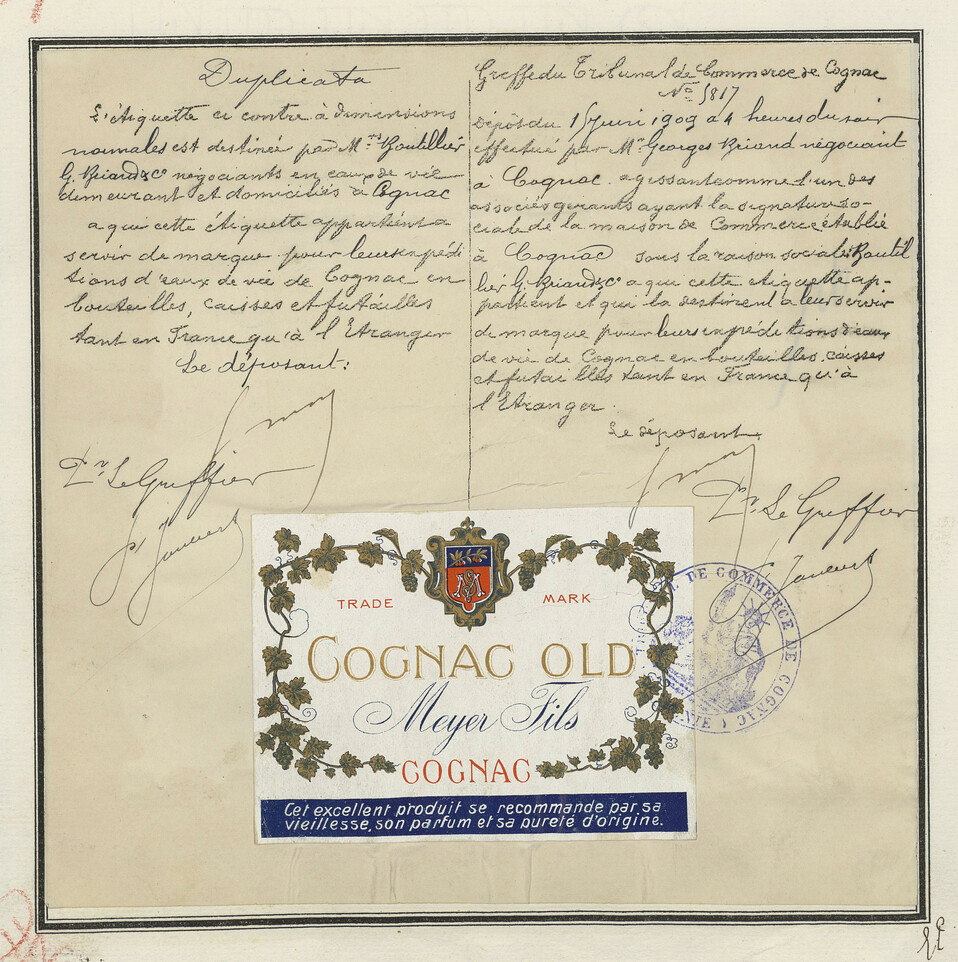 Duplicata
L'étiquette ci contre à dimensions
normales est destinée par Mrs Boutillier
G. Briand & Co négociants en eaux de vie
demeurant et domiciliés à Cognac
a qui cette étiquette appartient a
servir de marque pour leurs expédi
tions d'eaux de vie de Cognac en
bouteilles, caisses et futailles
tant en France qu'à l'Etranger
Le déposant:
Pr Le Greffier
Greffe du Tribunal de Commerce de Cognac
No 5817
Dépôt du 15 Juin 1909 à 4 heures du soir
effectué par Mr Georges Briand négociant
à Cognac agissant comme l'un des
associés gerants ayant la signature so-
ciale de la maison de Commerce établie
à Cognac sous la raison sociale Boutil
lier G. Briand & Co a qui cette etiquette ap-
partient et qui la destinent a leur servir
de marque pour leurs expéditions d'eaux
de vie de Cognac en bouteilles, caisses
et futailles tant en France qu'à
l'Etranger.
Le déposant
Pr Le Greffier
TRADE MARK
COGNAC OLD
Meyer Fils
COGNAC
Cet excellent produit se recommande par sa
vieillesse, son parfum et sa pureté d'origine.
DE COMMERCE DE COGNAC